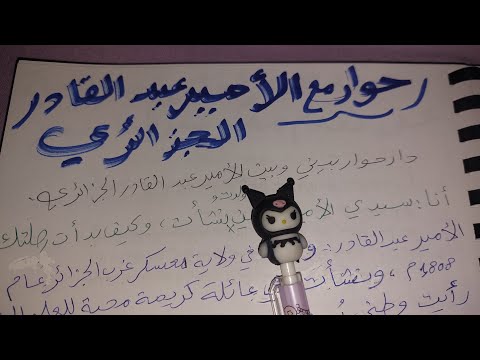 حوار مع الأمير عبد القادر
الجزائري
دار حوار بيني وبين الأمير عبد القادر الجزائري.
أنا: سيدي نشأت، وكيف بدأت رحلتك
الأمير عبد القادر: في ولاية معسكر غرب الجزائر عام
1808م، ونشأت عائلة كريمة محبة
رأيت وطني